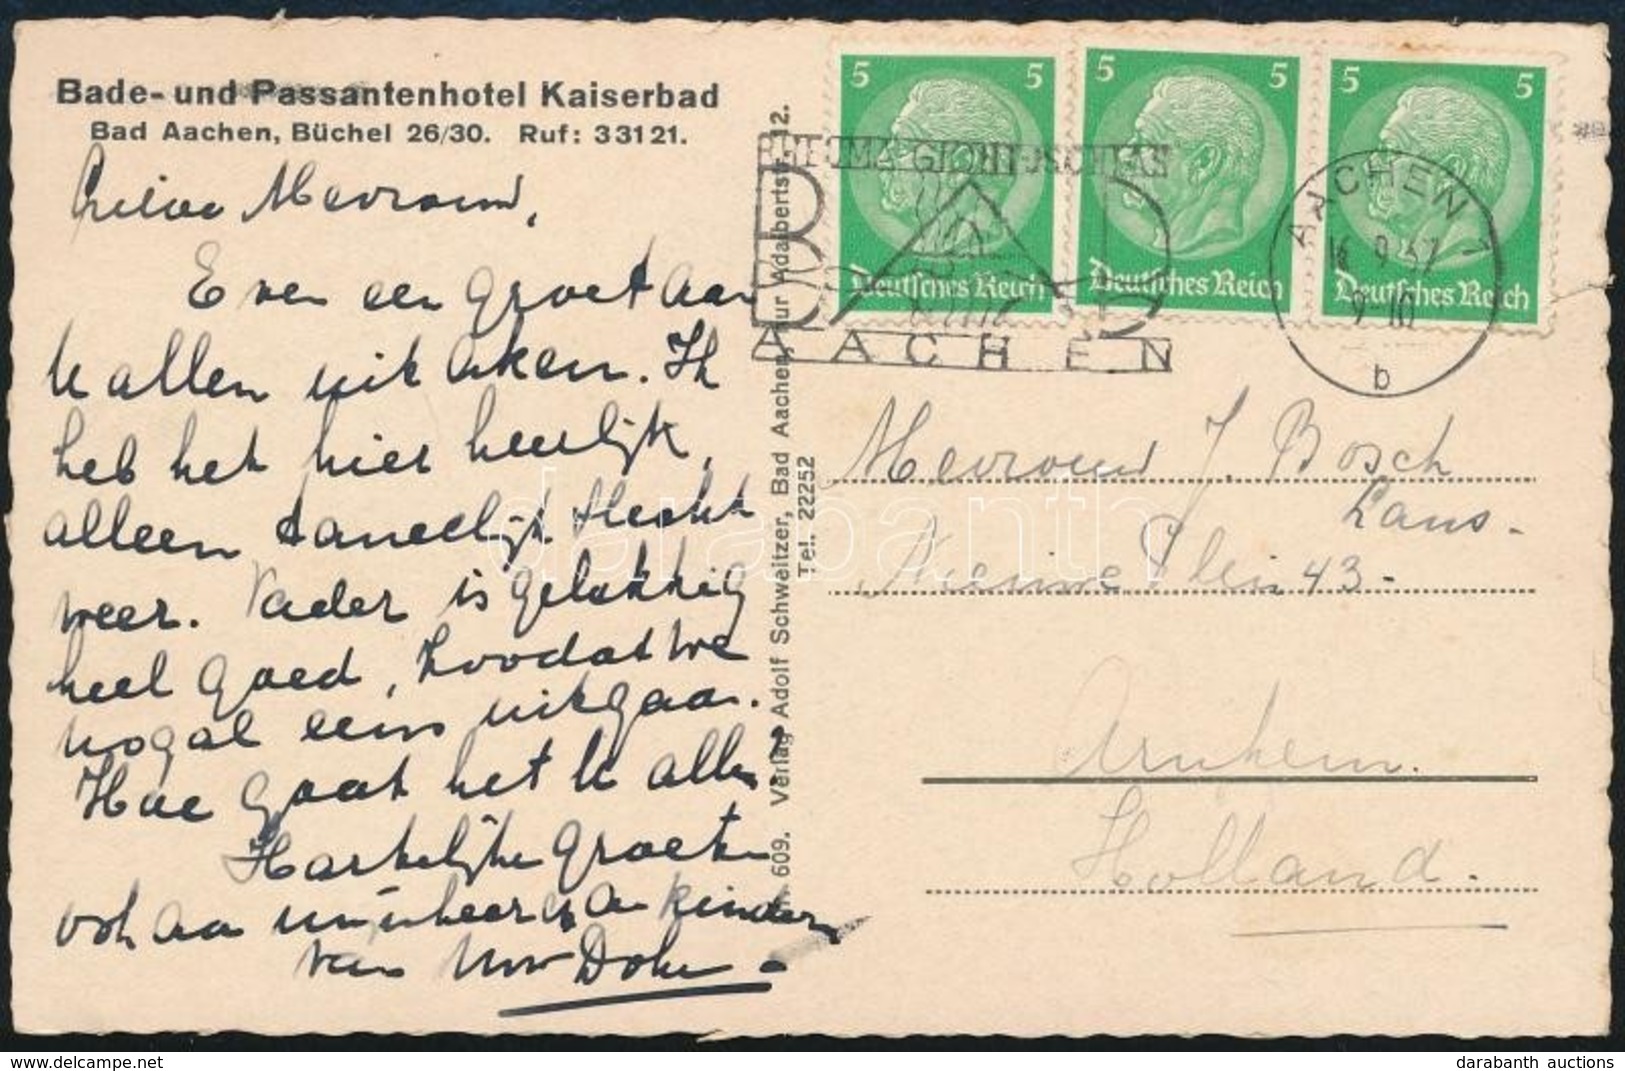 Bade- und Passantenhotel Kaiserbad
Bad Aachen, Büchel 26/30. Ruf: 33121.
Mevrouw,
Even een groet aan
U allen uit Aken. Ik
heb het hier heerlijk,
alleen slecht
weer. Vader is gelukkig
heel goed, zoodat we
nogal eens uitgaan.
Hoe gaat het U allen?
Hartelijke groeten
ook aan mijnheer en kinderen
van Uw
609. Verlag Adolf Schweitzer, Bad Aachen, nur Adalbertstr. 12.
Tel. 22252
5 5
Deutsches Reich
5 5
Deutsches Reich
5 5
Deutsches Reich
RHEUMA GICHT ISCHIAS
BAD
AACHEN
AACHEN 1
16.9.37
9-10
b
Mevrouw J. Bosch
Nieuwe Plein 43-
Arnhem.
Holland.
darabanth
delcampe.net
darabanth auctions